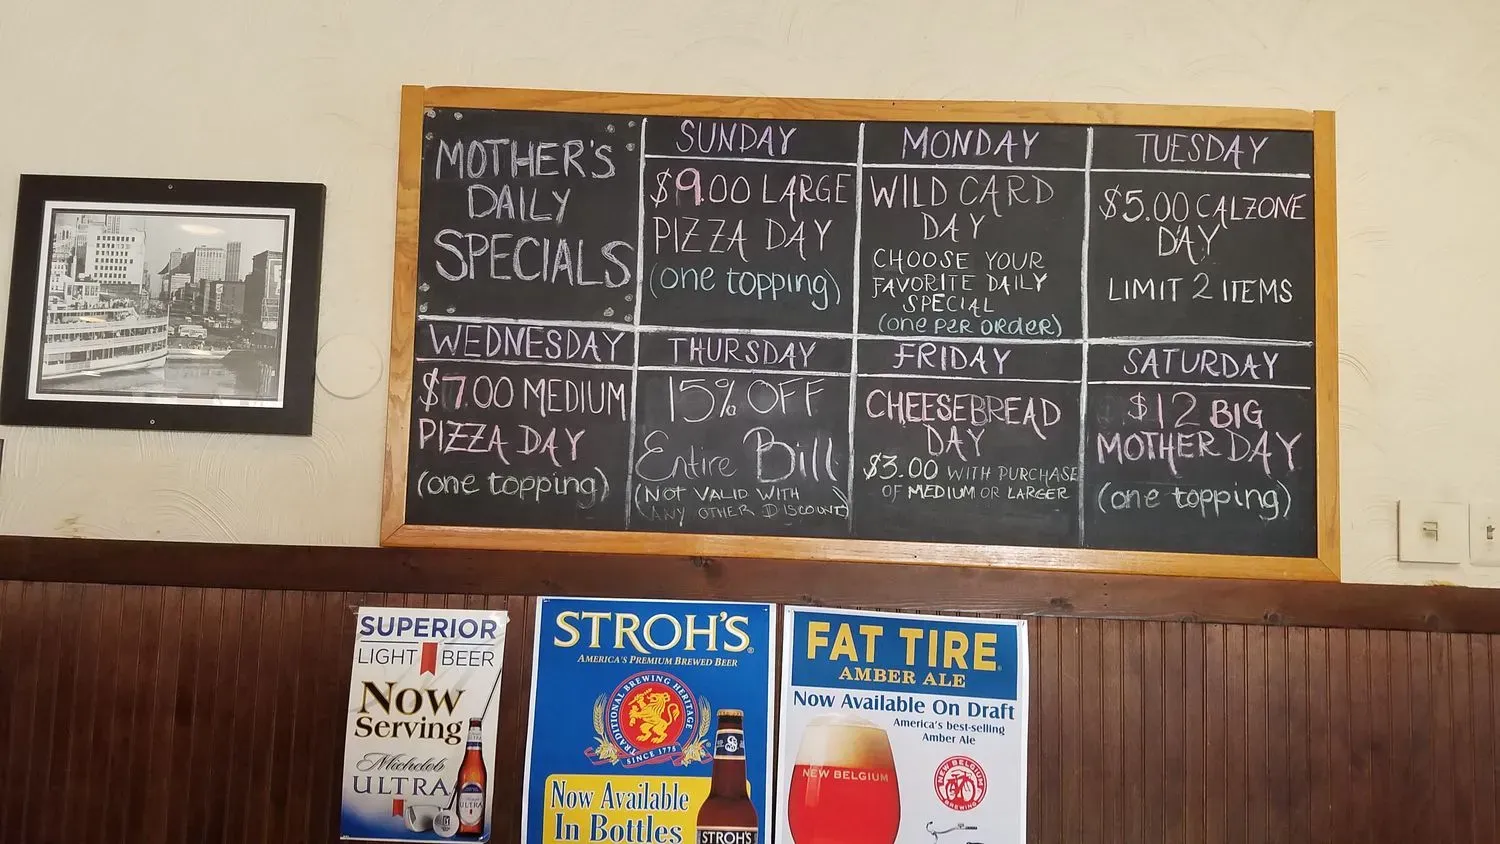 MOTHER'S
DAILY
SPECIALS
SUNDAY
$9.00 LARGE
PIZZA DAY
(one topping)
MONDAY
WILD CARD
DAY
CHOOSE YOUR
FAVORITE DAILY
SPECIAL
(ONE PER ORDER)
TUESDAY
$5.00 CALZONE
DAY
LIMIT 2 ITEMS
WEDNESDAY
$7.00 MEDIUM
PIZZA DAY
(one topping)
THURSDAY
15% OFF
Entire Bill
(NOT VALID WITH
ANY OTHER DISCOUNT)
FRIDAY
CHEESEBREAD
DAY
$3.00 WITH PURCHASE
OF MEDIUM OR LARGER
SATURDAY
$12 BIG
MOTHER DAY
(one topping)
SUPERIOR
LIGHT BEER
Now
Serving
Michelob
ULTRA
ULTRA
STROH'S
AMERICA'S PREMIUM BREWED BEER
TRADITIONAL BREWING HERITAGE
SINCE 1775
Now Available
In Bottles
STROH'S
FAT TIRE
AMBER ALE
Now Available On Draft
America's best-selling
Amber Ale
NEW BELGIUM
NEW BELGIUM
BREWING